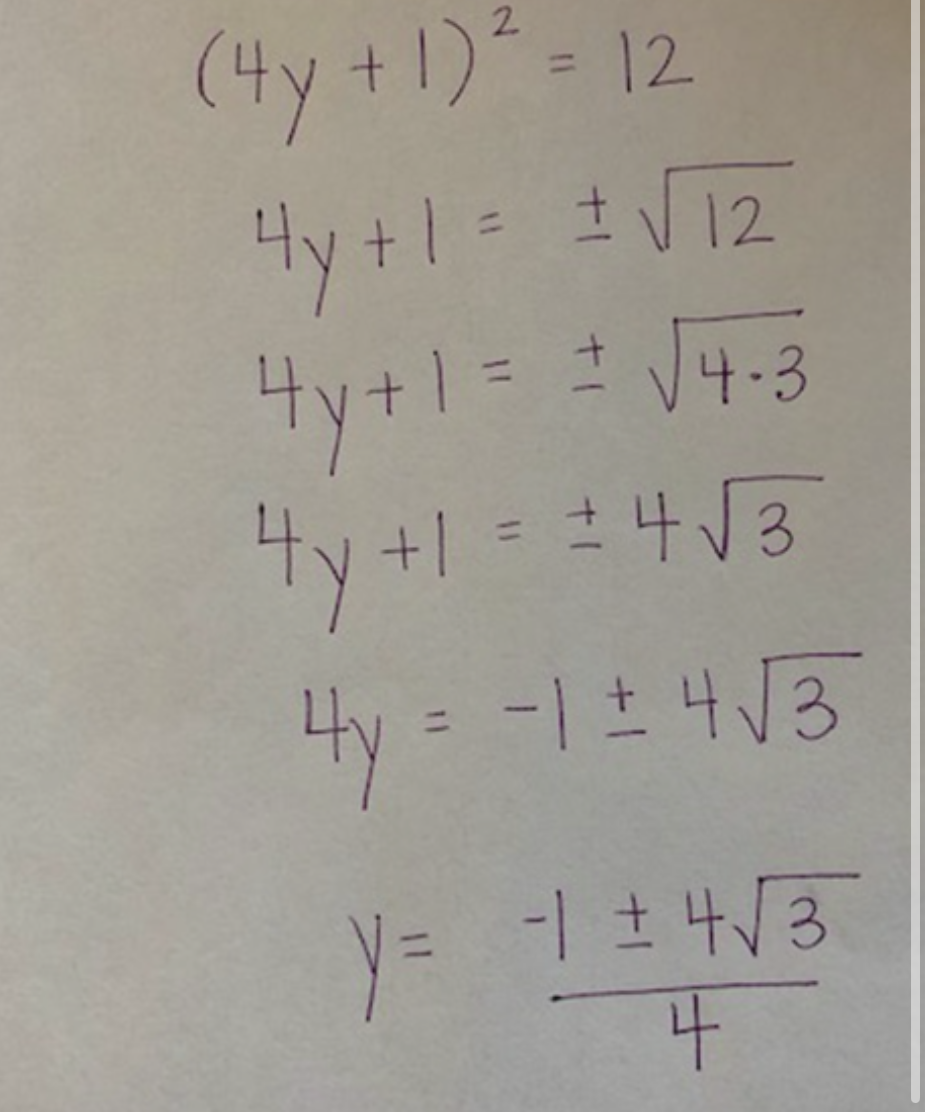 (4y + 1)² = 12
4y + 1 = ± √12
4y + 1 = ± √4·3
4y + 1 = ± 4√3
4y = -1 ± 4√3
y = -1 ± 4√3 / 4